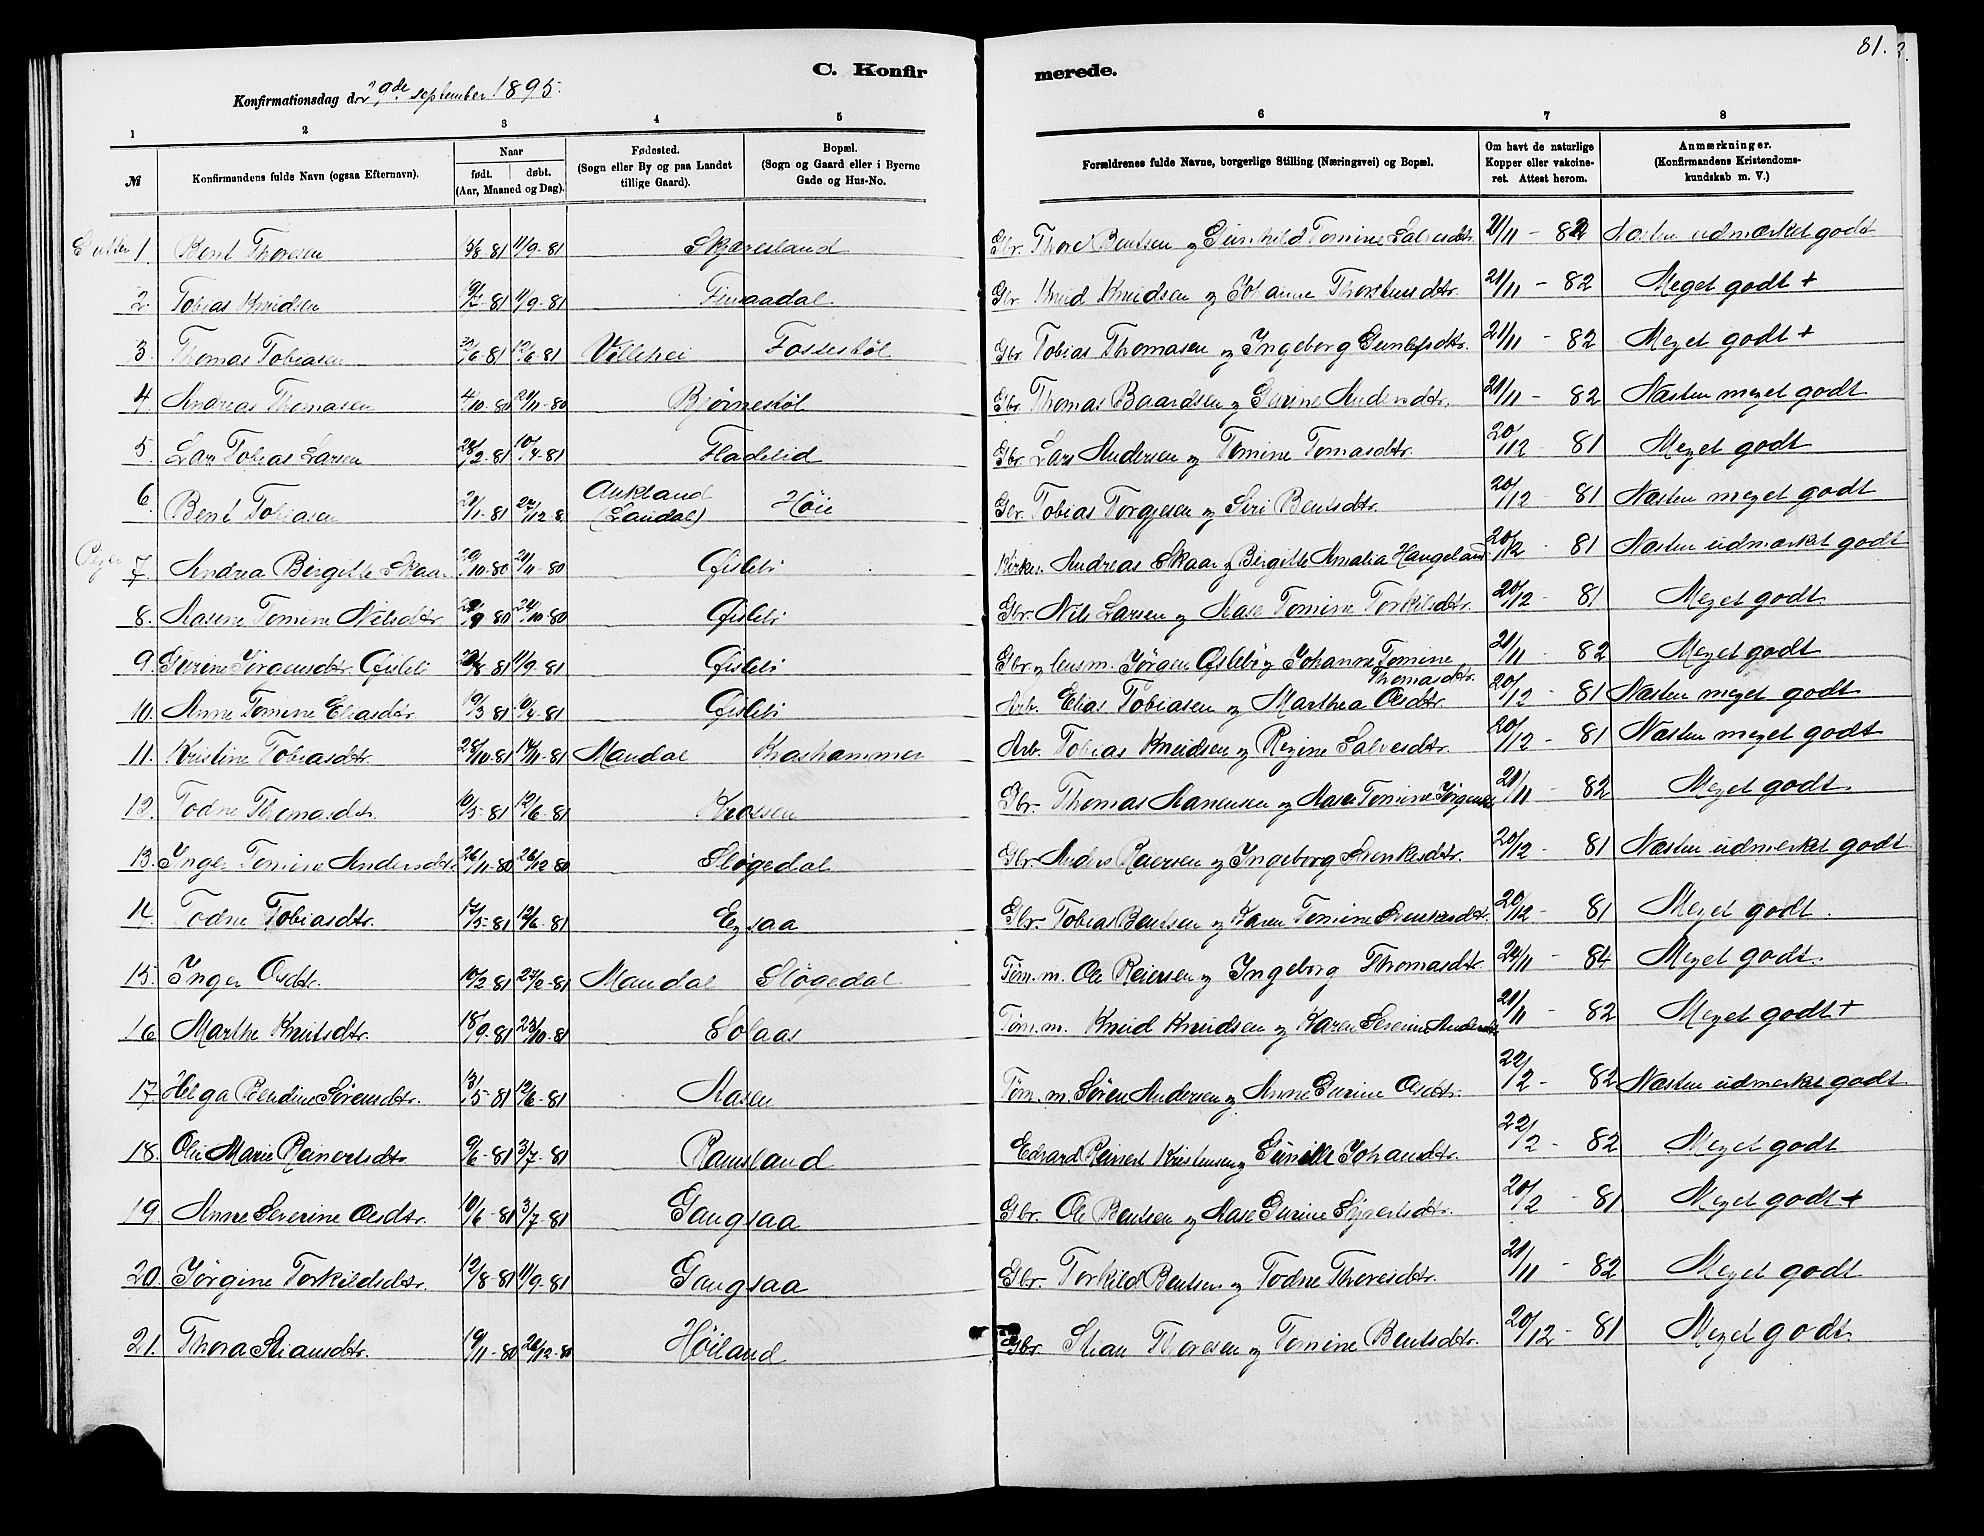 81.
C. Konfirmerede.
Konfirmationsdag den 29de september 1895.
1 2 3 4 5 6 7 8
№
Konfirmandens fulde Navn (ogsaa Efternavn).
Naar
født. døbt.
(Aar, Maaned og Dag).
Fødested.
(Sogn eller By og paa Landet
tillige Gaard).
Bopæl.
(Sogn og Gaard eller i Byerne
Gade og Hus-No.
Forældrenes fulde Navne, borgerlige Stilling (Næringsvei) og Bopæl.
Om havt de naturlige
Kopper eller vakcine-
ret. Attest herom.
Anmærkninger.
(Konfirmandens Kristendoms-
kundskab m. V.)
Gutter 1. Bent Thoresen 15/8-81 11/9-81 Skjævesland Gbr. Thore Bentsen og Gunhild Tomine Salvesdtr. 21/11-82 Næsten udmærket godt
2. Tobias Knudsen 9/7-81 11/9-81 Finsaadal Gbr. Knud Knudsen og Johanne Thorstensdtr. 21/11-82 Meget godt +
3. Thomas Tobiasen /6-81 12/6-81 Vallehei Fossestøl Gbr. Tobias Thomasen og Ingeborg Gunlefsdtr. 21/11-82 Meget godt +
4. Andreas Thomasen 4/10-80 21/11-80 Bjørnestøl Gbr. Thomas Baardsen og Gurine Andersdtr. 21/11-82 Næsten meget godt
5. Lars Tobias Larsen 28/2-81 10/4-81 Fladelid Gbr. Lars Andersen og Tomine Tomasdtr. 20/12-81 Meget godt
6. Bent Tobiasen 21/11-81 27/12-8 Aukland (Laudal) Høie Gbr. Tobias Torgjesen og Siri Bentsdtr. 20/12-81 Næsten meget godt
Piger 7. Andrea Birgitte Skaar 20/10-80 21/11-80 Øislebø Kirkes. Andreas Skaar og Birgitte Amalia Haugeland 20/12-81 Næsten udmærket godt
8. Aasene Tomine Nilsdtr. /9-80 24/10-80 Øislebø Gbr. Nils Larsen og Aase Tomine Torkilsdtr. 20/12-81 Meget godt
9. Gurine Jørgensdtr. Øislebø /8-81 11/9-81 Øislebø Gbr. og lensm. Jørgen Øislebø og Johanne Tomine Thomasdtr. 21/11-82 Meget godt
10. Anne Tomine Eliasdtr 10/3-81 10/4-81 Øislebø Arb. Elias Tobiasen og Marthea Olsdtr. 20/12-81 Næsten meget godt
11. Kristine Tobiasdtr. 28/10-81 14/11-81 Mandal Kroshammer Arb. Tobias Knudsen og Regine Salvesdtr. 20/12-81 Næsten meget godt
12. Todne Thomasdtr. 10/5-81 12/6-81 Krossen Gbr. Thomas Aanensen og Aase Tomine Jørgensd. 21/11-82 Meget godt
13. Inger Tomine Andersdtr. 26/11-80 26/12-80 Sløgedal Gbr. Anders Reiersen og Ingeborg Svenkesdtr. 20/12-81 Næsten udmerket godt
14. Todne Tobiasdtr. 17/5-81 12/6-81 Egsaa Gbr. Tobias Bentsen og Karen Tomine Svenkesdtr. 20/12-81 Meget godt.
15. Inger Olsdtr. 10/2-81 27/2-81 Mandal Sløgedal Tøm.m. Ole Reiersen og Ingeborg Thomasdtr. 24/11-84 Meget godt.
16 Marthe Knutsdtr. 18/9-81 23/10-81 Solaas Tøm.m. Knud Knudsen og Karen Severine Andersdtr 21/11-82 Meget godt +
17 Helga Bendine Sørensdtr. 13/5-81 12/6-81 Aasen Tøm.m. Søren Andersen og Anne Gurine Olsdtr. 22/2-82 Næsten udmerket godt
18. Olie Marie Reinertsdtr. 9/6-81 3/7-81 Ramsland Edvard Reinert Kristensen og Gunille Johansdtr. 22/2-82 Meget godt
19 Anne Severine Olsdtr. 10/6-81 3/7-81 Gangsaa Gbr. Ole Bentsen og Aase Gurine Syvertsdtr. 20/2-81 Meget godt +
20. Jørgine Torkildsdtr. 12/8-81 11/9-81 Gangsaa Gbr. Torkild Bentsen og Todne Thoresdtr. 21/11-82 Meget godt
21. Thora Stiansdtr. 19/11-80 26/12-80 Høiland Gbr. Stian Thoresen og Tomine Bentsdtr. 20/12-81 Meget godt